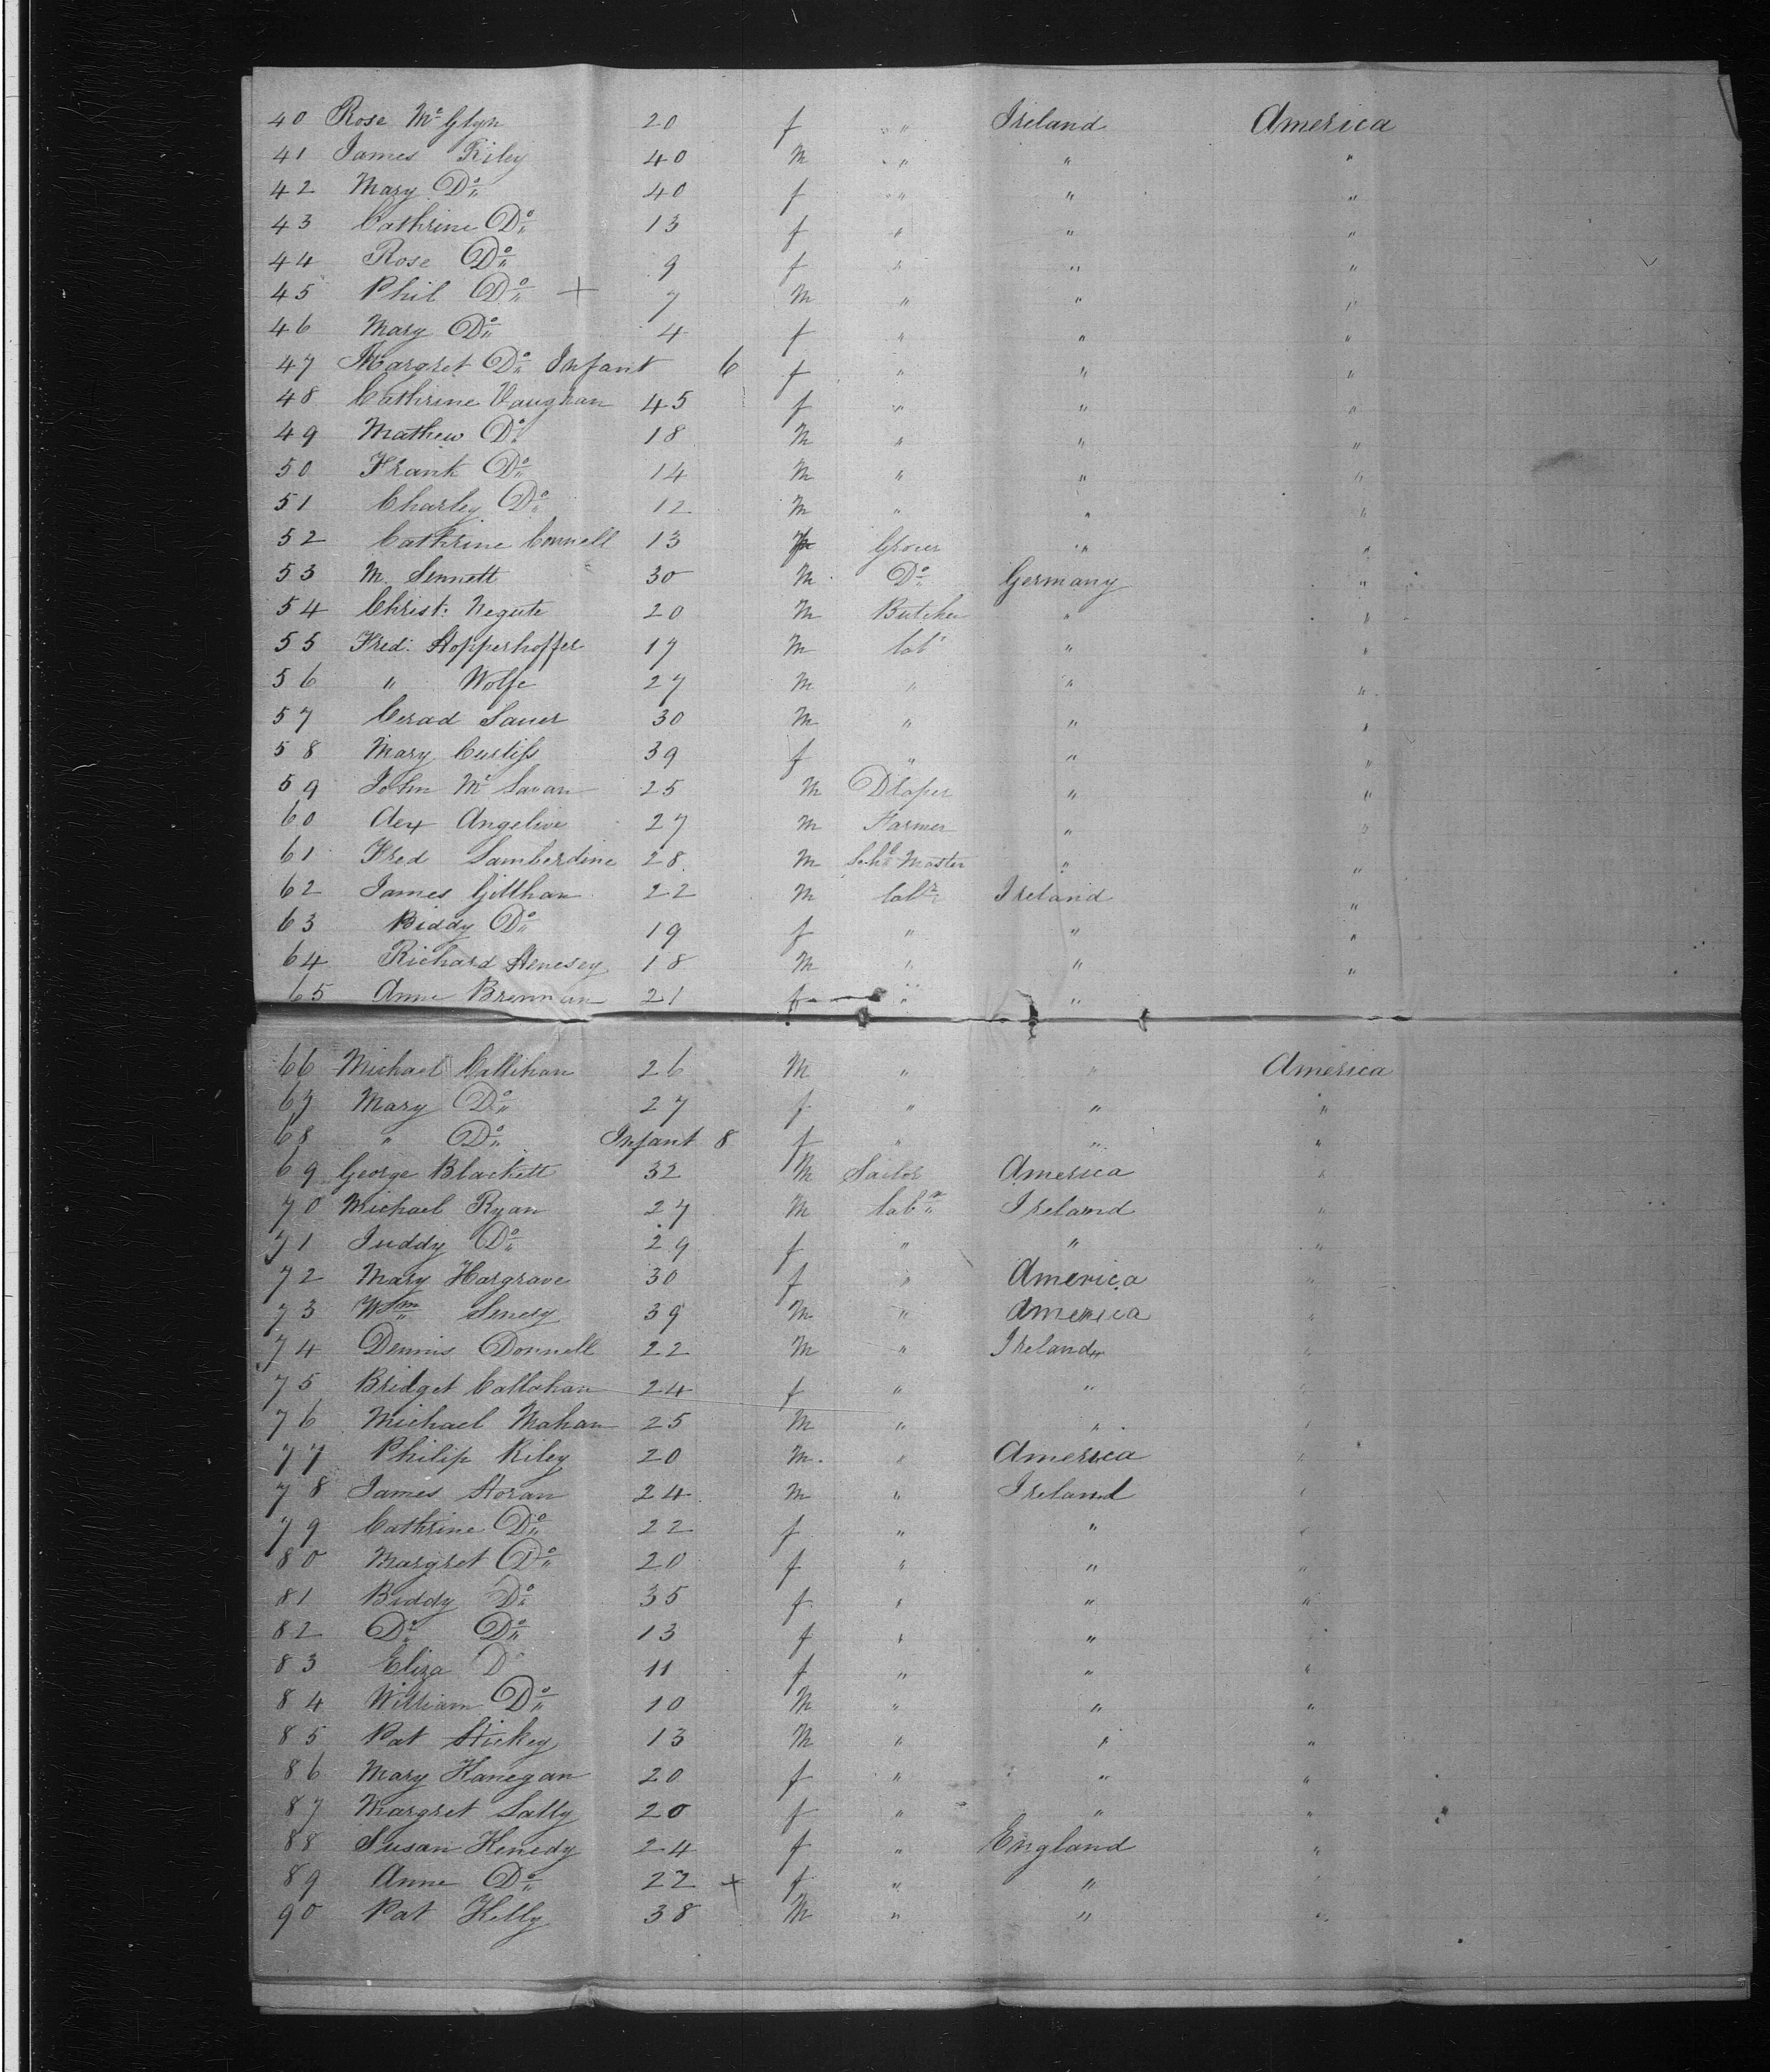 40 Rose McGlyn 20 f " Ireland America
41 James Riley 40 M " " "
42 Mary Do 40 f " " "
43 Cathrine Do 13 f " " "
44 Rose Do 9 f " " "
45 Phil Do + 7 M " " "
46 Mary Do 4 f " " "
47 Margret Do Infant 6 f " " "
48 Cathrine Vaughan 45 f " " "
49 Mathew Do 18 M " " "
50 Frank Do 14 M " " "
51 Charley Do 12 M " " "
52 Cathrine Connell 13 Grocer " "
53 M. Sennett 30 M Do Germany "
54 Christ: Negute 20 M Butcher " "
55 Fred: Hopperhoffer 17 M Labr " "
56 " Wolfe 27 M " " "
57 Cerad Sauer 30 M " " "
58 Mary Curtiss 39 f " " "
59 John Mc Savan 25 M Draper " "
60 Alex Angelive 27 M Farmer " "
61 Fred Lamberdine 28 M Schl Master " "
62 James Gillhan 22 M Labr Ireland "
63 Biddy Do 19 f " " "
64 Richard Henesey 18 M " " "
65 Anne Brennan 21 f " "
66 Michael Callihan 26 M " " America
67 Mary Do 27 f " " "
68 " Do Infant 8 f " " "
69 George Blackett 32 M Sailor America "
70 Michael Ryan 27 M Labr Ireland "
71 Juddy Do 29 f " " "
72 Mary Hargrave 30 f " America "
73 Wm Senesy 39 M " America "
74 Dennis Donnell 22 M " Ireland "
75 Bridget Callahan 24 f " " "
76 Michael Mahan 25 M " " "
77 Philip Riley 20 M. " America "
78 James Horan 24 M " Ireland "
79 Cathrine Do 22 f " " "
80 Margret Do 20 f " " "
81 Biddy Do 35 f " " "
82 Do Do 13 f " "
83 Eliza Do 11 f " " "
84 William Do 10 M " " "
85 Pat Hickey 13 M " " "
86 Mary Flanegan 20 f " " "
87 Margret Lally 20 f " " "
88 Susan Kenedy 24 f " England "
89 Anne Do 22 + f " " "
90 Pat Kelly 38 M " " "